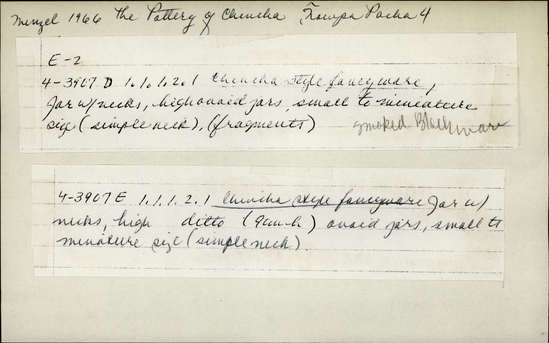 Menzel 1966 The Pottery of Chincha Ñawpa Pacha 4
E-2
4-3907 D 1.1.1.2.1 Chincha style fancyware,
Jar w/necks, high ovoid jars, small to miniature
size (simple neck), (fragments) smoked Blackware
4-3907 E 1.1.1.2.1 Chincha style fancyware Jar w/
necks, high ditto ovoid jars, small to
miniature size (simple neck).